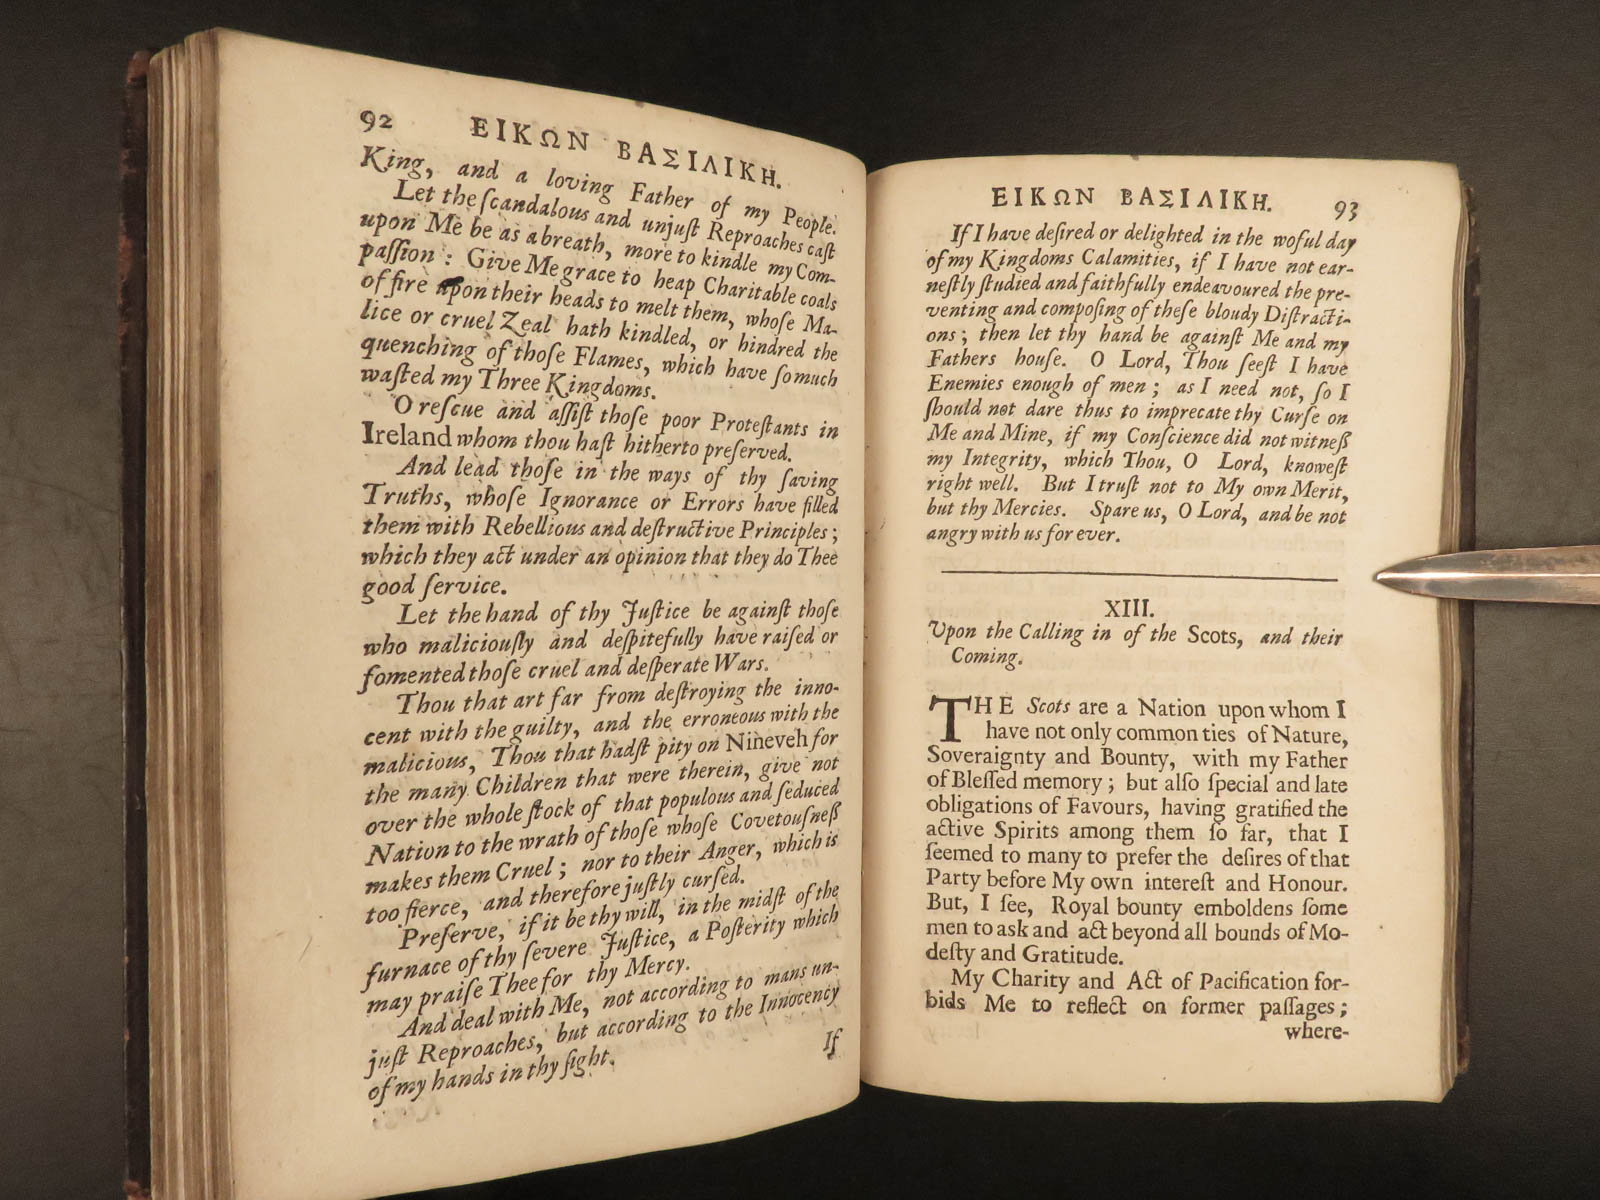 92 ΕΙΚΩΝ ΒΑΣΙΛΙΚΗ.
King, and a loving Father of my People.
Let the ſcandalous and unjuſt Reproaches caſt
upon Me be as a breath, more to kindle my Com-
paſſion : Give Me grace to heap Charitable coals
of fire upon their heads to melt them, whoſe Ma-
lice or cruel Zeal hath kindled, or hindred the
quenching of thoſe Flames, which have ſo much
waſted my Three Kingdoms.
O reſcue and aſſiſt thoſe poor Proteſtants in
Ireland whom thou haſt hitherto preſerved.
And lead thoſe in the ways of thy ſaving
Truths, whoſe Ignorance or Errors have filled
them with Rebellious and deſtructive Principles ;
which they act under an opinion that they do Thee
good ſervice.
Let the hand of thy Juſtice be againſt thoſe
who maliciouſly and deſpitefully have raiſed or
fomented thoſe cruel and deſperate Wars.
Thou that art far from deſtroying the inno-
cent with the guilty, and the erroneous with the
malicious, Thou that hadſt pity on Nineveh for
the many Children that were therein, give not
over the whole ſtock of that populous and ſeduced
Nation to the wrath of thoſe whoſe Covetouſneß
makes them Cruel ; nor to their Anger, which is
too fierce, and therefore juſtly curſed.
Preſerve, if it be thy will, in the midſt of the
furnace of thy ſevere Juſtice, a Poſterity which
may praiſe Thee for thy Mercy.
And deal with Me, not according to mans un-
juſt Reproaches, but according to the Innocency
of my hands in thy ſight.
If
ΕΙΚΩΝ ΒΑΣΙΛΙΚΗ. 93
If I have deſired or delighted in the woful day
of my Kingdoms Calamities, if I have not ear-
neſtly ſtudied and faithfully endeavoured the pre-
venting and compoſing of theſe bloudy Diſtracti-
ons ; then let thy hand be againſt Me and my
Fathers houſe. O Lord, Thou ſeeſt I have
Enemies enough of men ; as I need not, ſo I
ſhould not dare thus to imprecate thy Curſe on
Me and Mine, if my Conſcience did not witneß
my Integrity, which Thou, O Lord, knoweſt
right well. But I truſt not to My own Merit,
but thy Mercies. Spare us, O Lord, and be not
angry with us for ever.
XIII.
Upon the Calling in of the Scots, and their
Coming.
THE Scots are a Nation upon whom I
have not only common ties of Nature,
Soveraignty and Bounty, with my Father
of Bleſſed memory ; but alſo ſpecial and late
obligations of Favours, having gratified the
active Spirits among them ſo far, that I
ſeemed to many to prefer the deſires of that
Party before My own intereſt and Honour.
But, I ſee, Royal bounty emboldens ſome
men to ask and act beyond all bounds of Mo-
deſty and Gratitude.
My Charity and Act of Pacification for-
bids Me to reflect on former paſſages ;
where-